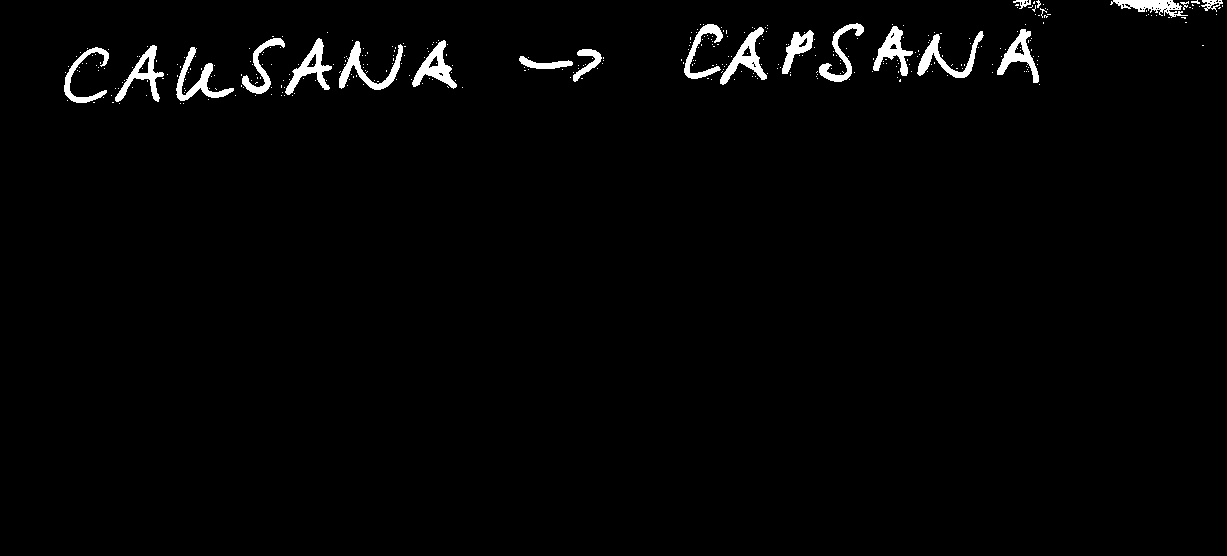 CAUSANA → CAPSANA